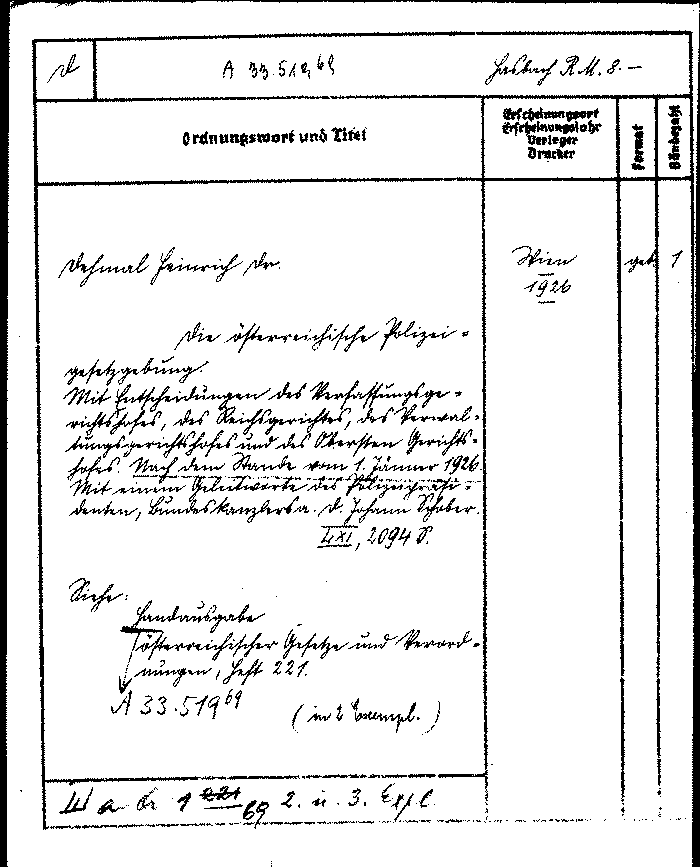 D
A 33.519,69
Hasbach R.M. 8.—
Ordnungswort und Titel
Erscheinungsort
Erscheinungsjahr
Verleger
Drucker
Format
Bändezahl
Dehmal Heinrich Dr.
Wien
1926
geb
1
Die österreichische Polizei-
gesetzgebung.
Mit Entscheidungen des Verfassungsge-
richtshofes, des Reichsgerichtes, des Verwal-
tungsgerichtshofes und des Obersten Gerichts-
hofes. Nach dem Stande vom 1. Jänner 1926.
Mit einem Geleitworte des Polizeipräsi-
denten, Bundeskanzlers a. D. Johann Schober.
LXI, 2094 S.
Siehe:
Handausgabe
österreichischer Gesetze und Verord-
nungen, Heft 221.
A 33.519 69
(in 2 Exempl.)
a 1 221 69 2. u. 3. Expl.